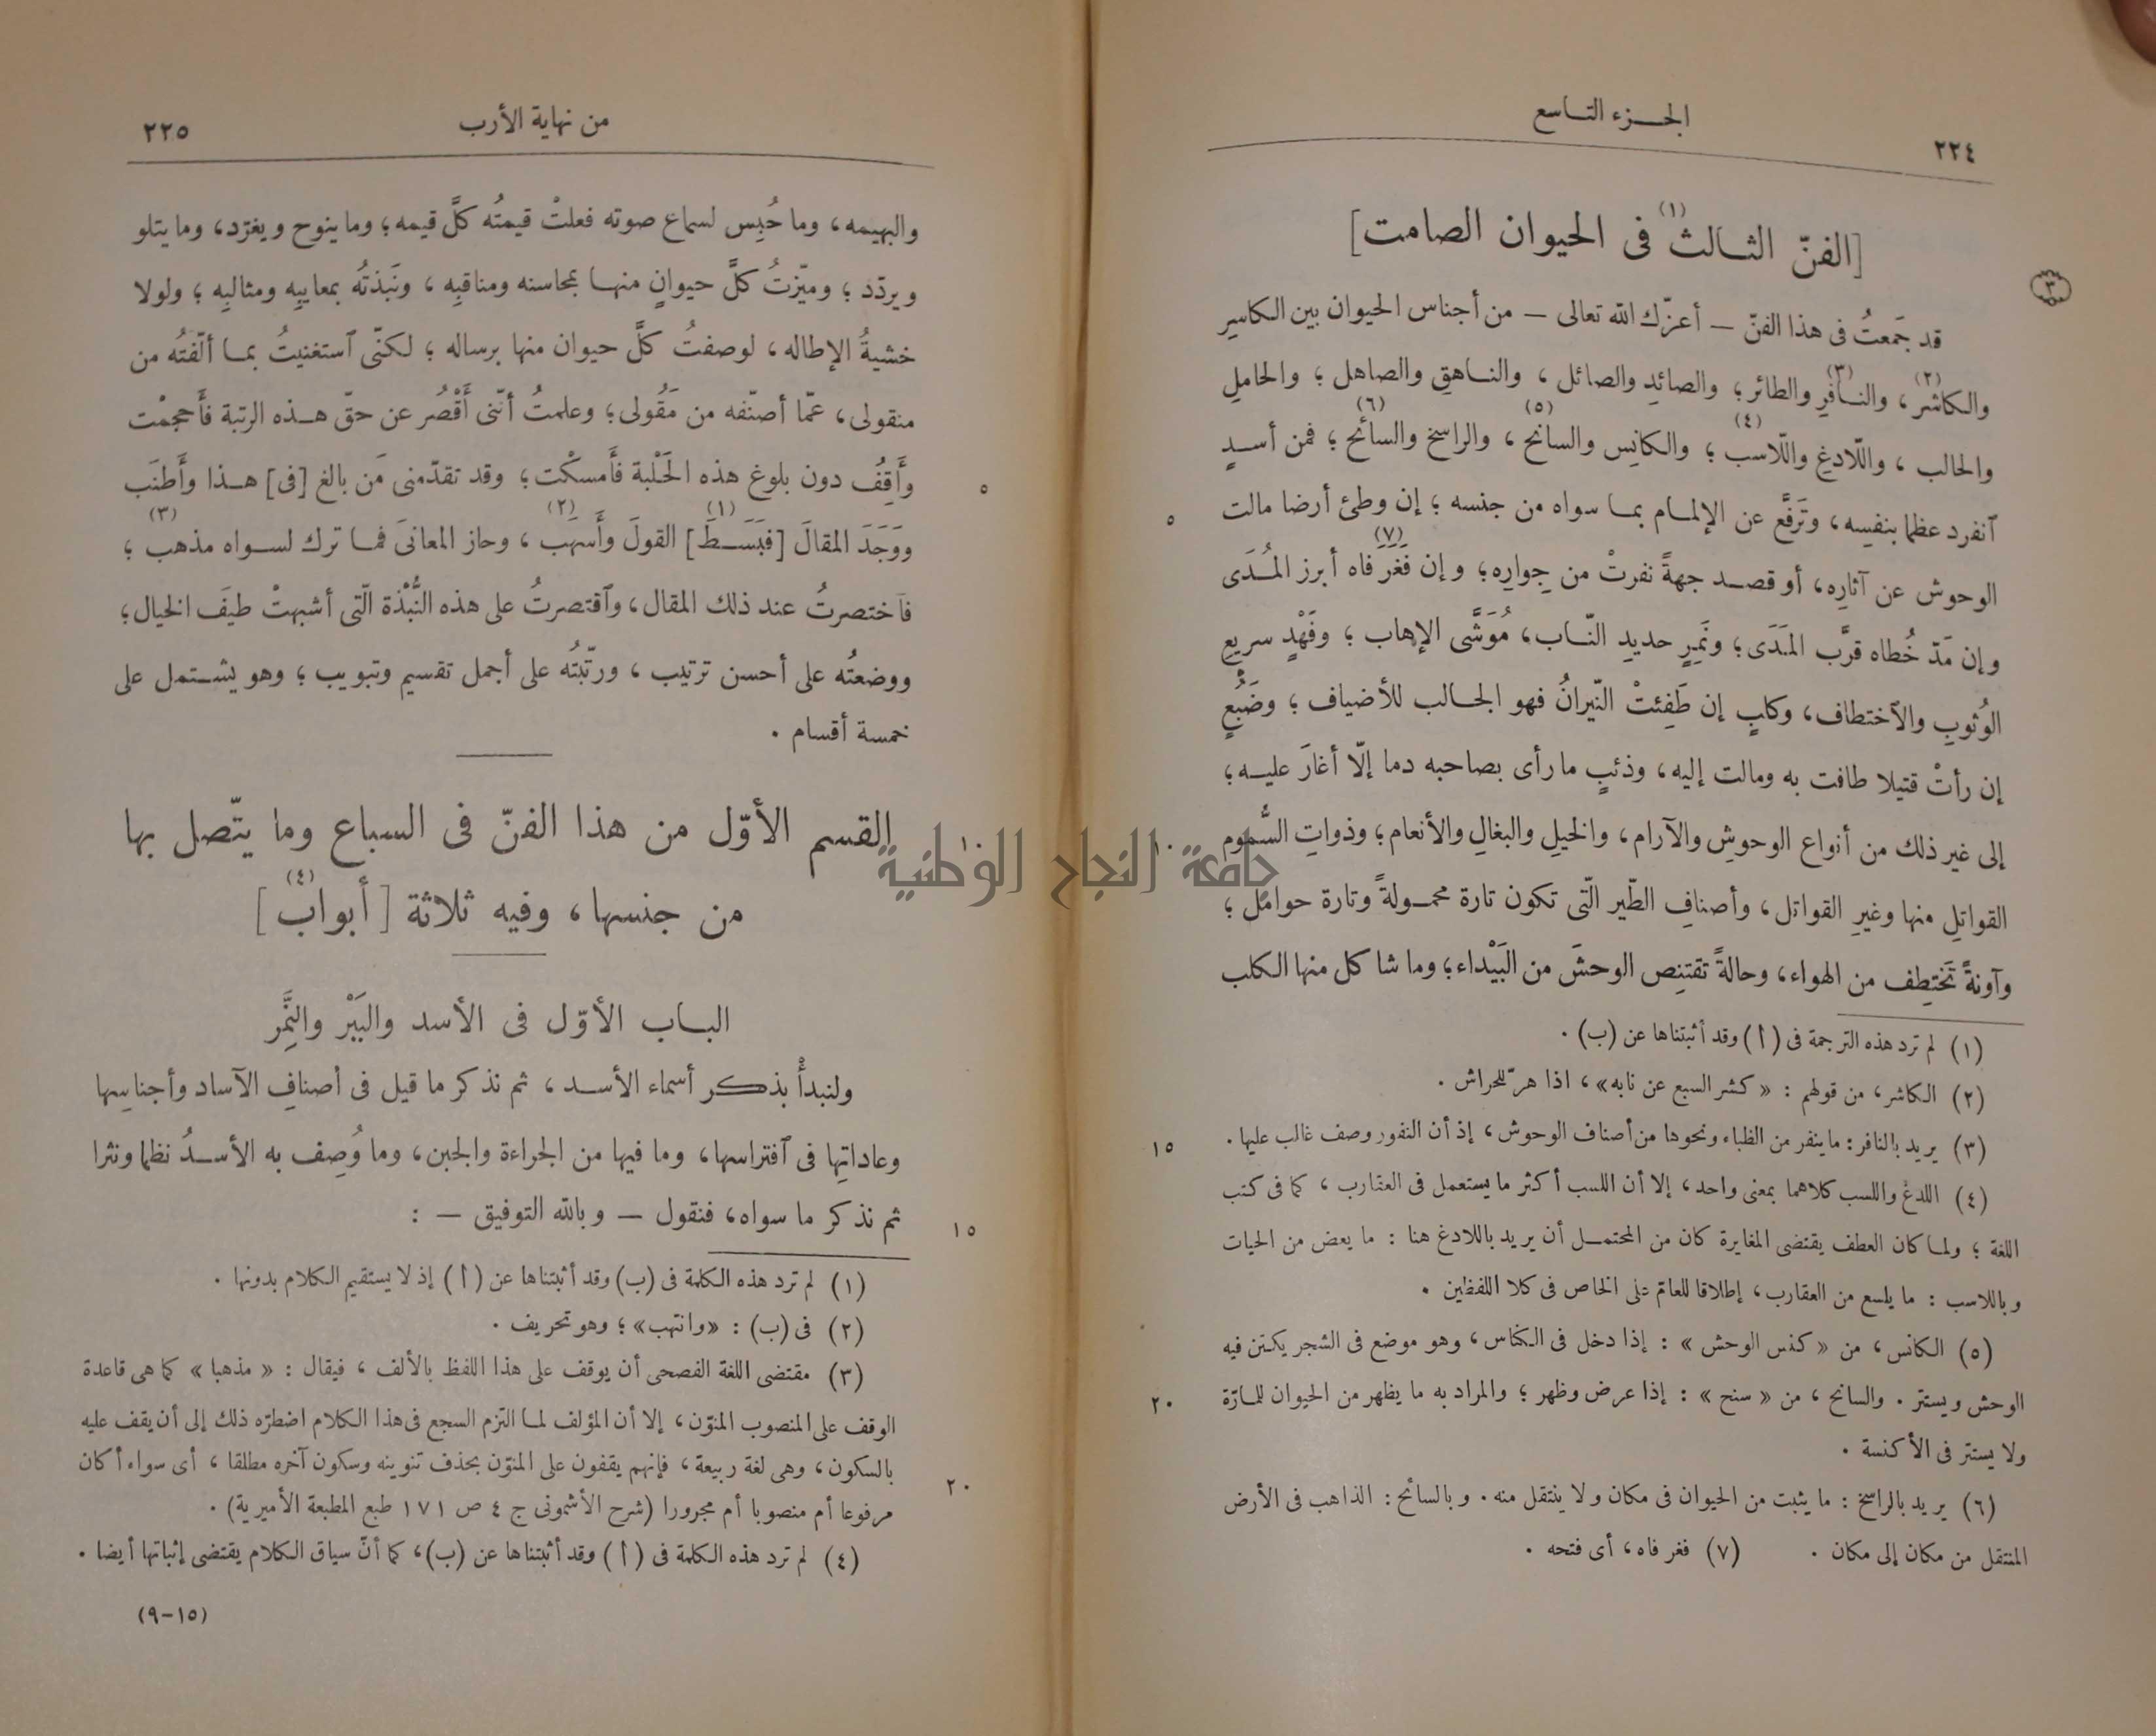 ٢٢٤
الجزء التاسع
[الفنّ الثالث(١) فى الحيوان الصامت]
٣
قد جَمعتُ فى هذا الفنّ — أعزّك الله تعالى — من أجناس الحيوان بين الكاسِرِ
والكاشر(٢)، والنافرِ(٣) والطائر؛ والصائدِ والصائل، والناهقِ والصاهل؛ والحاملِ
والحالب، واللّادغِ واللّاسب(٤)؛ والكانِس والسانح(٥)، والراسخ والسائح(٦)؛ فمن أسدٍ
٥
ٱنفرد عظما بنفسِه، وتَرَفَّع عن الإلمام بما سواه من جنسه؛ إن وطئ أرضا مالت
الوحوش عن آثارِه، أو قصد جهةً نفرتْ من جِوارِه؛ وإن فَغَرَ(٧) فاه أبرز المُدَى
وإن مَدّ خُطاه قرَّب المَدَى؛ ونَمِرٍ حديدِ النّاب، مُوَشَّى الإهاب؛ وفَهْدٍ سريعِ
الوُثوبِ والٱختطاف، وكلبٍ إن طَفِئتْ النّيرانُ فهو الجالب للأضياف؛ وضَبُعٍ
إن رأتْ قتيلا طافت به ومالت إليه، وذئبٍ ما رأى بصاحبه دما إلّا أغارَ عليه؛
١٠
إلى غير ذلك من أنواع الوحوشِ والآرام، والخيلِ والبغالِ والأنعام؛ وذواتِ السُّموم
القواتلِ منها وغيرِ القواتل، وأصنافِ الطّير الّتى تكون تارة محمولةً وتارة حوامل؛
وآونةً تَختطِف من الهواء، وحالةً تقتنِص الوحشَ من البَيْداء؛ وما شاكل منها الكلب
(١) لم ترد هذه الترجمة فى (أ) وقد أثبتناها عن (ب).
(٢) الكاشر، من قولهم : «كشر السبع عن نابه»، اذا هرّ للحراش.
١٥
(٣) يريد بالنافر : ما ينفر من الظباء ونحوها من أصناف الوحوش، إذ أن النفور وصف غالب عليها.
(٤) اللدغ واللسب كلاهما بمعنى واحد، إلا أن اللسب أكثر ما يستعمل فى العقارب، كما فى كتب
اللغة؛ ولما كان العطف يقتضى المغايرة كان من المحتمل أن يريد باللادغ هنا : ما يعض من الحيات
وباللاسب : ما يلسع من العقارب، إطلاقا للعامّ على الخاص فى كلا اللفظين.
(٥) الكانس، من «كنس الوحش» : إذا دخل فى الكناس، وهو موضع فى الشجر يكتن فيه
٢٠
الوحش ويستتر. والسانح، من «سنح» : إذا عرض وظهر؛ والمراد به ما يظهر من الحيوان للمارّة
ولا يستتر فى الأكنسة.
(٦) يريد بالراسخ : ما يثبت من الحيوان فى مكان ولا ينتقل منه. وبالسائح : الذاهب فى الأرض
المنتقل من مكان إلى مكان. (٧) فغر فاه، أى فتحه.
من نهاية الأرب
٢٢٥
والبهيمه، وما حُبِس لسماع صوته فعلتْ قيمتُه كلَّ قيمه؛ وما ينوح ويغرّد، وما يتلو
ويردّد؛ وميّزتُ كلَّ حيوانٍ منها بمحاسنه ومناقبِه، ونَبَذتُه بمعاييِه ومثالبِه؛ ولولا
خشيةُ الإطاله، لوصفتُ كلَّ حيوان منها برساله؛ لكنّى ٱستغنيتُ بما ألّفتُه من
منقولى، عمّا أصنّفه من مَقُولى؛ وعلمتُ أنّنى أَقْصُر عن حقّ هذه الرتبة فأَحجمْت
٥
وأَقِفُ دون بلوغ هذه الحَلْبة فأَمسكْت؛ وقد تقدّمنى مَن بالغ [فى] هذا وأَطنَب
ووَجَدَ المقالَ [فبَسَطَ](١) القولَ وأَسهَب(٢)، وحاز المعانىَ فما ترك لسواه مذهب(٣)؛
فٱختصرتُ عند ذلك المقال، وٱقتصرتُ على هذه النُّبْذة الّتى أشبهتْ طيفَ الخيال؛
ووضعتُه على أحسن ترتيب، ورتّبتُه على أجمل تقسيم وتبويب؛ وهو يشتمل على
خمسة أقسام.
١٠
القسم الأوّل من هذا الفنّ فى السباع وما يتّصل بها
من جنسها، وفيه ثلاثة [أبواب(٤)]
الباب الأوّل فى الأسد والبَبْر والنَّمِر
ولنبدأْ بذكر أسماء الأسد، ثم نذكر ما قيل فى أصنافِ الآساد وأجناسِها
وعاداتِها فى ٱفتراسها، وما فيها من الجراءة والجبن، وما وُصِف به الأسدُ نظما ونثرا
١٥
ثم نذكر ما سواه، فنقول — وبالله التوفيق — :
(١) لم ترد هذه الكلمة فى (ب) وقد أثبتناها عن (أ) إذ لا يستقيم الكلام بدونها.
(٢) فى (ب) : «وانتهب»؛ وهو تحريف.
(٣) مقتضى اللغة الفصحى أن يوقف على هذا اللفظ بالألف، فيقال : «مذهبا» كما هى قاعدة
الوقف على المنصوب المنوّن، إلا أن المؤلف لما التزم السجع فى هذا الكلام اضطرّه ذلك إلى أن يقف عليه
٢٠
بالسكون، وهى لغة ربيعة، فإنهم يقفون على المنوّن بحذف تنوينه وسكون آخره مطلقا، أى سواء أكان
مرفوعا أم منصوبا أم مجرورا (شرح الأشمونى ج ٤ ص ١٧١ طبع المطبعة الأميرية).
(٤) لم ترد هذه الكلمة فى (أ) وقد أثبتناها عن (ب)، كما أنّ سياق الكلام يقتضى إثباتها أيضا.
(٩-١٥)
جامعة النجاح الوطنية